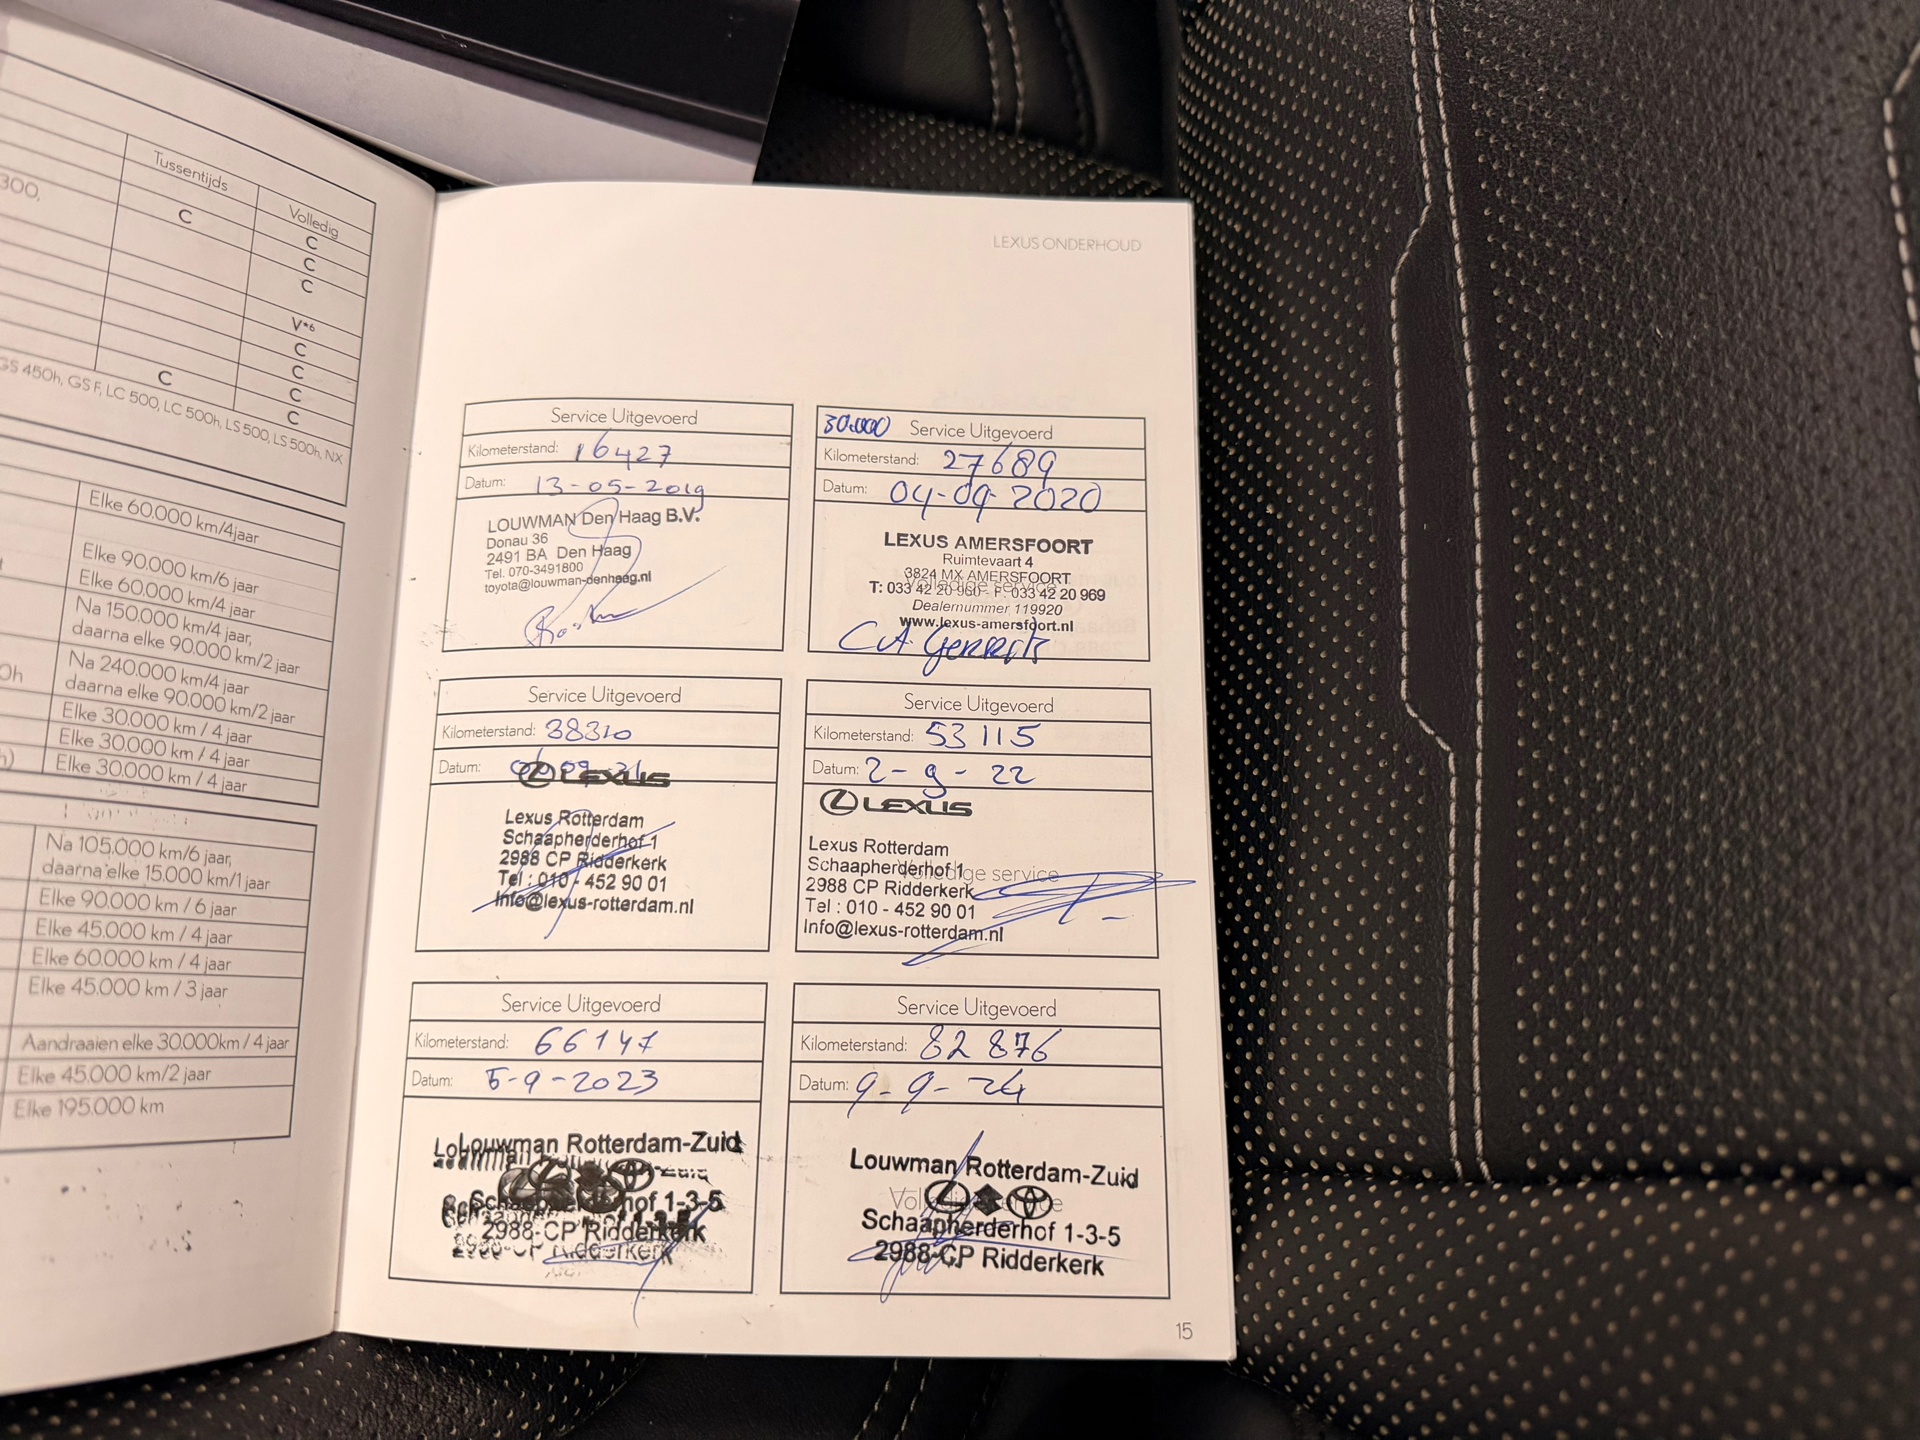 300,
Tussentijds
Volledig
C
C
C
C
V*6
C
C
C
C
C
GS 450h, GS F, LC 500, LC 500h, LS 500, LS 500h, NX
Elke 60.000 km/4jaar
Elke 90.000 km/6 jaar
Elke 60.000 km/4 jaar
Na 150.000 km/4 jaar,
daarna elke 90.000 km/2 jaar
Na 240.000 km/4 jaar
daarna elke 90.000 km/2 jaar
Elke 30.000 km / 4 jaar
Elke 30.000 km / 4 jaar
Elke 30.000 km / 4 jaar
Na 105.000 km/6 jaar,
daarna elke 15.000 km/1 jaar
Elke 90.000 km / 6 jaar
Elke 45.000 km / 4 jaar
Elke 60.000 km / 4 jaar
Elke 45.000 km / 3 jaar
Aandraaien elke 30.000km / 4 jaar
Elke 45.000 km/2 jaar
Elke 195.000 km
LEXUS ONDERHOUD
Service Uitgevoerd
Kilometerstand: 16427
Datum: 13-05-2019
LOUWMAN Den Haag B.V.
Donau 36
2491 BA Den Haag
Tel. 070-3491800
toyota@louwman-denhaag.nl
30.000 Service Uitgevoerd
Kilometerstand: 27689
Datum: 04-09-2020
LEXUS AMERSFOORT
Ruimtevaart 4
3824 MX AMERSFOORT
Volledige service
T: 033 42 20 960 - F: 033 42 20 969
Dealernummer 119920
www.lexus-amersfoort.nl
Service Uitgevoerd
Kilometerstand: 38310
Datum:
LEXUS
Lexus Rotterdam
Schaapherderhof 1
2988 CP Ridderkerk
Tel : 010 - 452 90 01
Info@lexus-rotterdam.nl
Service Uitgevoerd
Kilometerstand: 53115
Datum: 2-9-22
LEXUS
Lexus Rotterdam
Schaapherderhof 1
Volledige service
2988 CP Ridderkerk
Tel : 010 - 452 90 01
Info@lexus-rotterdam.nl
Service Uitgevoerd
Kilometerstand: 66147
Datum: 5-9-2023
Louwman Rotterdam-Zuid
Schaapherderhof 1-3-5
2988-CP Ridderkerk
Service Uitgevoerd
Kilometerstand: 82876
Datum: 9-9-24
Louwman Rotterdam-Zuid
Volledige service
Schaapherderhof 1-3-5
2988-CP Ridderkerk
15